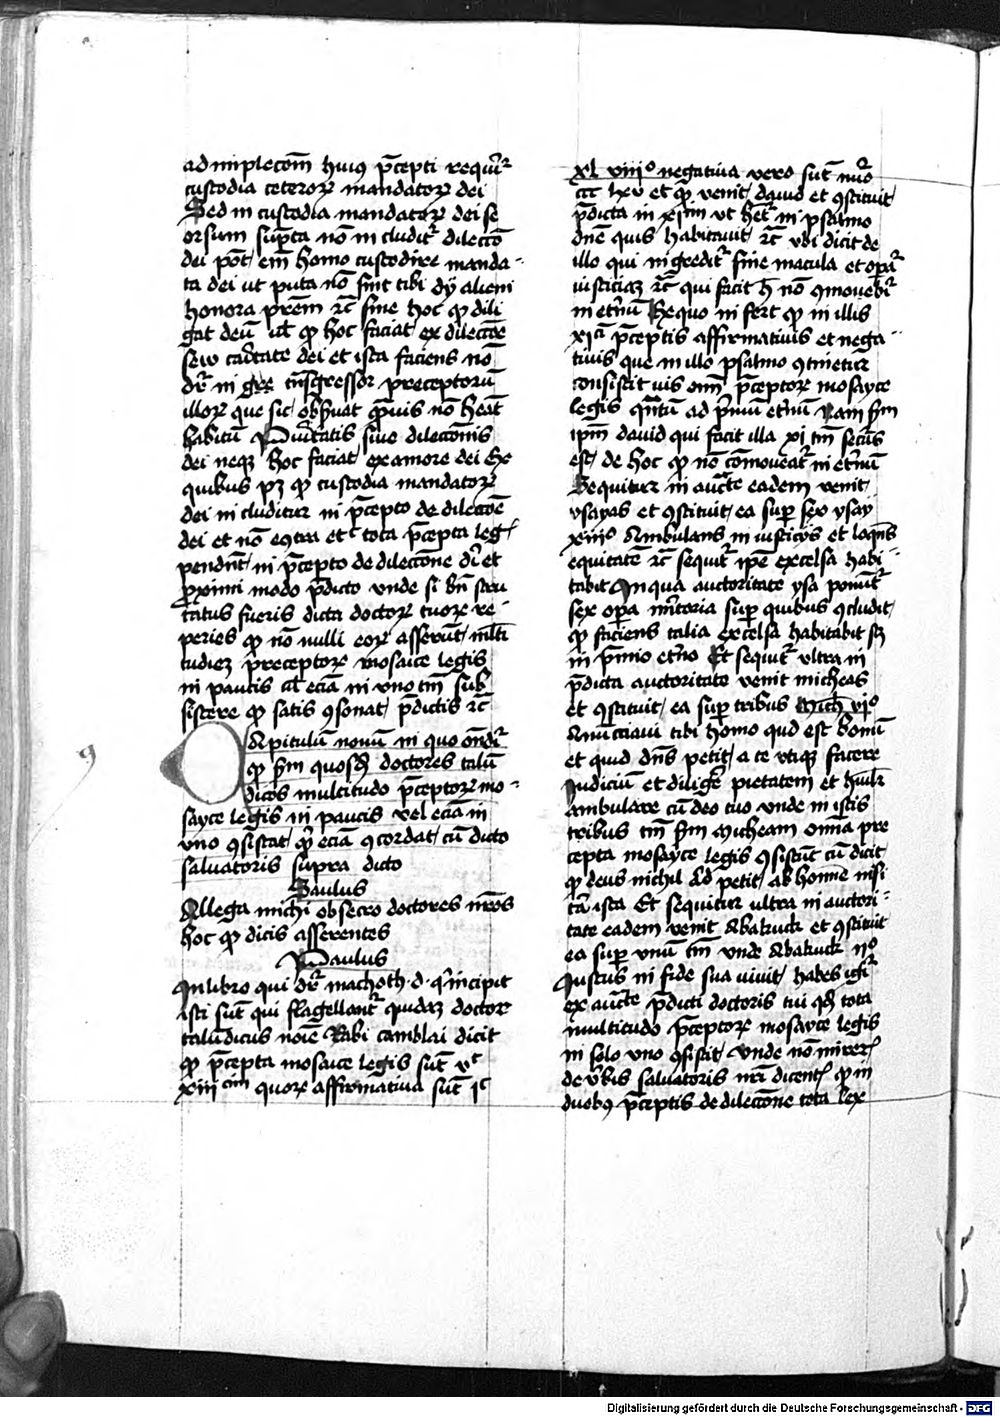 ad impleco᷄m huiꝰ p̄cepti requirit᷑
custodia ceteroꝝ mandatoꝝ dei
Sed in custodia mandatoꝝ dei se
orsum sūpta nō includit᷑ dilecco᷄
dei pōt em̄ homo custodire manda
ta dei ut puta nō sint tibi dij alieni
honora prēm ⁊c̄ sine hoc ꝙ dili
gat deū ul̄ ꝙ hoc faciat ex dileccōe
seu caritate dei et ista faciens nō
dr̄ in gr̄e tn̄sgressor preceptorū
illoꝝ que sic obs̄uat qᵃmuis nō heāt
habitū Puritatis siue dileccōnis
dei neqꝫ hoc faciat ex amore dei Ex
quibus pꝫ ꝙ custodia mandatoꝝ
dei includitur in p̄cepto de dileccōe
dei et nō econtra etc̄ tota p̄cepta leg
pendēt in p̄cepto de dileccōne dei et
ꝓximi modo p̄dicto unde si bn̄ scru
tatus fueris dicta doctoꝝ tuoꝝ re
peries ꝙ nō nulli eoꝝ asserūt mlti
tudiez preceptoꝝ mosaice legis
in paucis ul̄ eciā in uno tm̄ sub
sistere ꝙ satis ꝯsonat p̄dictis ⁊c̄
Capitulū nonū in quo ondit᷑
ꝙ scdm quosdā doctores talm
dicos multitudo p̄ceptoꝝ mo
sayce legis in paucis vel eciā in
vno ꝯsistat ꝙ eciā ꝯcordat cū dicto
saluatoris supra dicto
Saulus
Allega michi obsecro doctores nr̄os
hoc ꝙ dicis asserentes
Paulus
In libro qui dr̄ machoth d. q̇ incipit
isti sūt qui flagellant᷑ quidaz doctor
talmudicus noīe Rabi camblai dicit
ꝙ p̄cepta mosaice legis sūt vᶜ
xiii cim quoꝝ affirmatiua sūt iᶜ
xl viijᵒ negatiua vero sūt nūo
ccc lxv et ꝙ venit dauid et ꝯstituit
p̄dicta in xjcim vt het᷑ in psalmo
dn̄e quis habitauit ⁊c̄ vbi dicit de
illo qui ingredit᷑ sine macula et opat᷑
iusticiaz ⁊c̄ qui facit h̄ nō ꝯmouebit᷑
in et̄nū Ex quo infert ꝙ in illis
xjcī p̄ceptis affirmatiuis et nega
tiuis que in illo psalmo ꝯtinetur
consistit uis om̄i p̄ceptoꝝ mosayce
legis qn̄tū ad p̄miū et̄nū Nam scdm
ipm̄ dauid qui facit illa xi tm̄ secūs
est de hoc ꝙ nō cōmoueat᷑ in et̄nū
Sequitur in aucte eadem venit
ysayas et ꝯstituit ea sup̄ sex ysay
xxiijᵒ Ambulans in iusticijs et loqn̄s
equitatē ⁊c̄ sequit᷑ ipē excelsa habi
tabit In qua auctoritate ysa ponūt᷑
sex opa m̄itoria sup̄ quibus ꝯcludit
ꝙ faciens talia excelsa habitabit sꝫ
in p̄mio et̄no Et sequit᷑ vltra in
p̄dicta auctoritate venit micheas
et ꝯstituit ea sup̄ tribus Mich vjᵒ
Anūcciaui tibi homo quid est bonū
et quid dn̄s petit a te vtiqꝫ facere
Iudiciū et diligē pietatem et humilr̄
ambulare cū deo tuo vnde in istis
tribus tm̄ scdm Micheam omīa pre
cepta mosayce legis ꝯsistūt cū dicit
ꝙ deus nichil Ad petit ab hoīe nisi
tria ista Et sequitur ultra in auctori
tate eadem venit Abakuck et ꝯstituit
ea sup̄ vnū tm̄ vnde Abakuck ijᵒ
Iustus in fide sua viuit habes igit᷑
ex aucte p̄dicti doctoris tui ꝙ tota
multitudo p̄ceptoꝝ mosayce legis
in solo vno ꝯsistit vnde nō mirer̄
de v̄bis saluatoris nr̄i dicent̄ ꝙ in
duobꝰ p̄ceptis de dileccōne tota lex
9
Digitalisierung gefördert durch die Deutsche Forschungsgemeinschaft - DFG